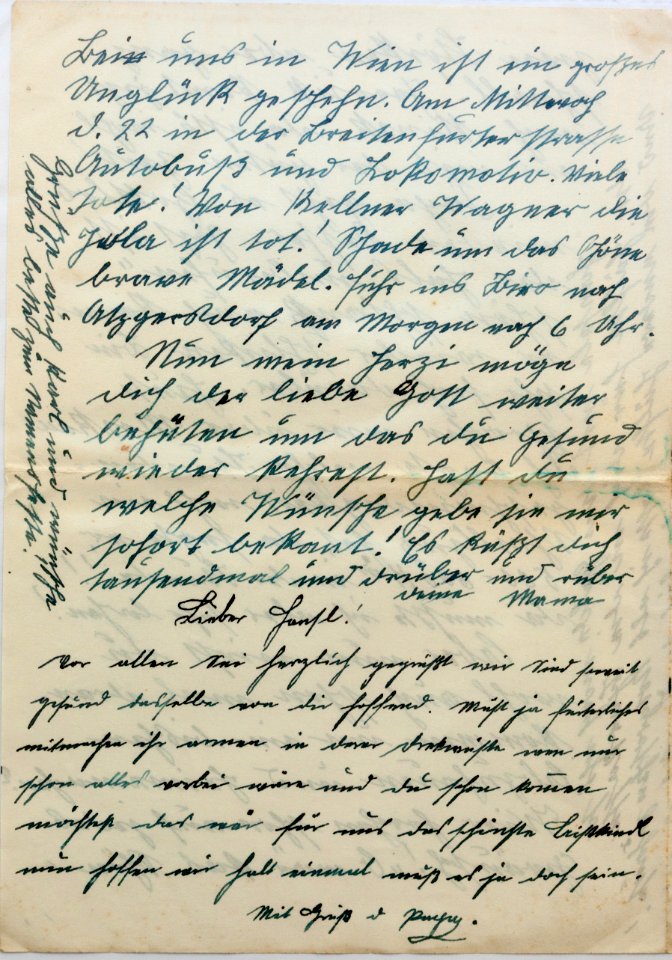 Bei uns in Wien ist ein großes
Unglück geschehn. Am Mittwoch
d. 22 in der Breitenfurterstrasse
Autobuß und Lokomotiv. Viele
Tote! Von Kellner Wagner die
Jola ist tot! Schade um das schöne
brave Mädel. fuhr ins Biro nach
Atzgersdorf am Morgen nach 6 Uhr.
Nun mein Herzi möge
dich der liebe Gott weiter
behüten um das du Gesund
wieder kehrest. Hast du
welche Wünsche gebe sie mir
sofort bekant! Es küßt dich
tausendmal und drüber und rüber
deine Mama
Lieber Hansl!
Vor allen Sei herzlich gegrüßt wir Sind soweit
gesund dasselbe von dir hoffend. Must ja fürterliches
mitmachen ihr armen in derer Drekwüste wen nur
schon alles vorbei wäre und du schon kommen
möchtest das wär für uns das schönste Kristkindl
nun hoffen wir halt einmal muß es ja doch sein.
Mit Gruß d Papa.
Grüße auch Karl und wünsche
alles beste zum Namensfeste.